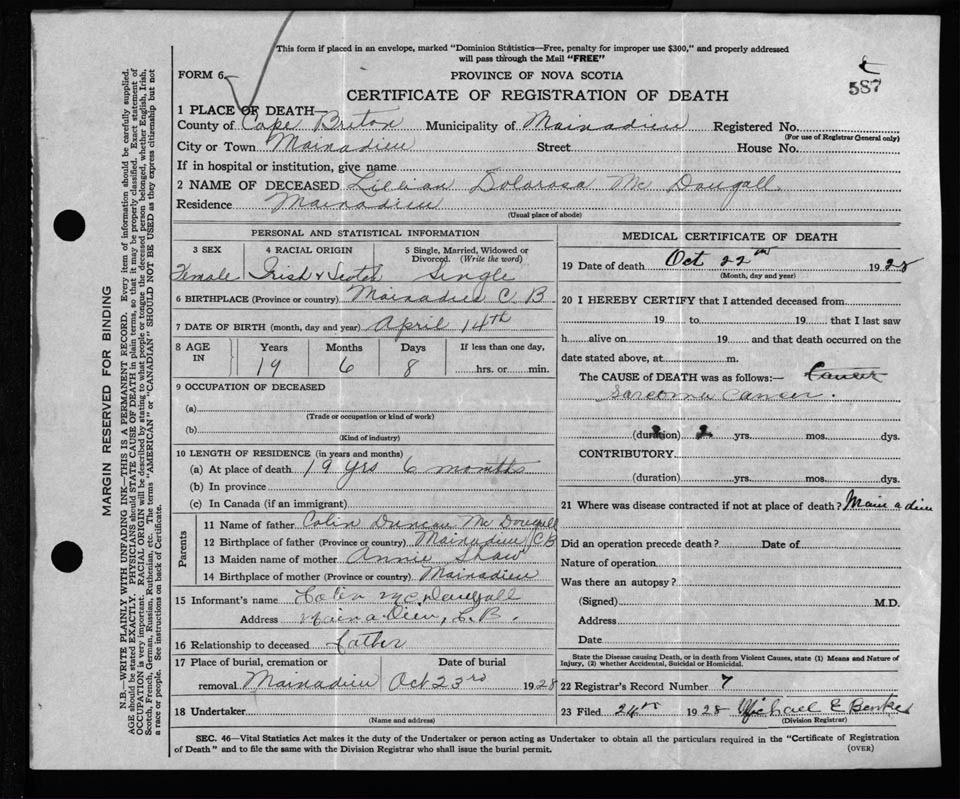 This form if placed in an envelope, marked "Dominion Statistics—Free, penalty for improper use $300," and properly addressed
will pass through the Mail "FREE"
FORM 6
PROVINCE OF NOVA SCOTIA
587
CERTIFICATE OF REGISTRATION OF DEATH
1 PLACE OF DEATH
County of Cape Breton Municipality of Mainadieu Registered No.
(For use of Registrar General only)
City or Town Mainadieu Street House No.
If in hospital or institution, give name
2 NAME OF DECEASED Lillian Dolorosa Mc Dougall
Residence Mainadieu
(Usual place of abode)
PERSONAL AND STATISTICAL INFORMATION
3 SEX 4 RACIAL ORIGIN 5 Single, Married, Widowed or
Divorced. (Write the word)
Female Irish & Scotch Single
6 BIRTHPLACE (Province or country) Mainadieu C B
7 DATE OF BIRTH (month, day and year) April 14th
8 AGE IN Years Months Days If less than one day,
19 6 8 hrs. or min.
9 OCCUPATION OF DECEASED
(a)
(Trade or occupation or kind of work)
(b)
(Kind of industry)
10 LENGTH OF RESIDENCE (in years and months)
(a) At place of death 19 yrs 6 months
(b) In province
(c) In Canada (if an immigrant)
Parents
11 Name of father Colin Duncan Mc Dougall
12 Birthplace of father (Province or country) Mainadieu CB
13 Maiden name of mother Annie Shaw
14 Birthplace of mother (Province or country) Mainadieu
15 Informant's name Colin McDougall
Address Main a Dieu, C.B.
16 Relationship to deceased father
17 Place of burial, cremation or Date of burial
removal Mainadieu Oct 23rd 1928
18 Undertaker
(Name and address)
MEDICAL CERTIFICATE OF DEATH
19 Date of death Oct 22nd 1928
(Month, day and year)
20 I HEREBY CERTIFY that I attended deceased from
19 to 19 that I last saw
h alive on 19 and that death occurred on the
date stated above, at m.
The CAUSE of DEATH was as follows:— Cancer
Sarcoma Cancer.
(duration) 2 yrs. mos. dys.
CONTRIBUTORY
(duration) yrs. mos. dys.
21 Where was disease contracted if not at place of death? Main a dieu
Did an operation precede death? Date of
Nature of operation
Was there an autopsy?
(Signed) M.D.
Address
Date
State the Disease causing Death, or in death from Violent Causes, state (1) Means and Nature of
Injury, (2) whether Accidental, Suicidal or Homicidal.
22 Registrar's Record Number 7
23 Filed 24th 1928 Michael E
(Division Registrar)
SEC. 46—Vital Statistics Act makes it the duty of the Undertaker or person acting as Undertaker to obtain all the particulars required in the "Certificate of Registration
of Death" and to file the same with the Division Registrar who shall issue the burial permit.
(OVER)
MARGIN RESERVED FOR BINDING
N.B.—WRITE PLAINLY WITH UNFADING INK—THIS IS A PERMANENT RECORD. Every item of information should be carefully supplied.
AGE should be stated EXACTLY. PHYSICIANS should STATE CAUSE OF DEATH in plain terms, so that it may be properly classified. Exact statement of
OCCUPATION is very important. RACIAL ORIGIN will be described by stating to what people or tongue the deceased person belonged, whether English, Irish,
Scotch, French, German, Russian, Ruthenian, etc. The terms "AMERICAN" or "CANADIAN" SHOULD NOT BE USED as they express citizenship but not
a race or people. See instructions on back of Certificate.